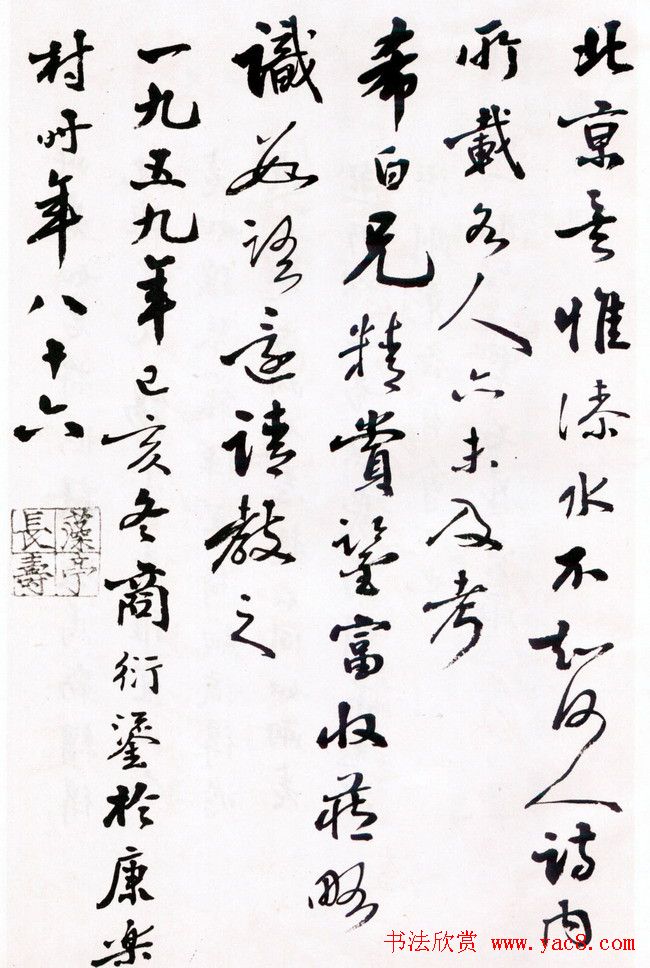 北京音惟溱水不知何人詩内
所載各人六未及考
希白兄精賞鑒富收藏略
識數語還請教之
一九五九年己亥冬商衍鎏於康樂
村时年八十六
藻亭
長壽
书法欣赏 www.yac8.com